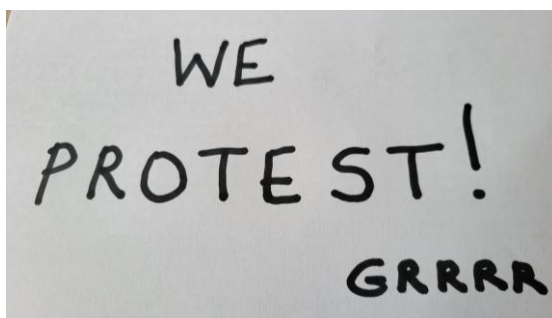 WE
PROTEST!
GRRRR